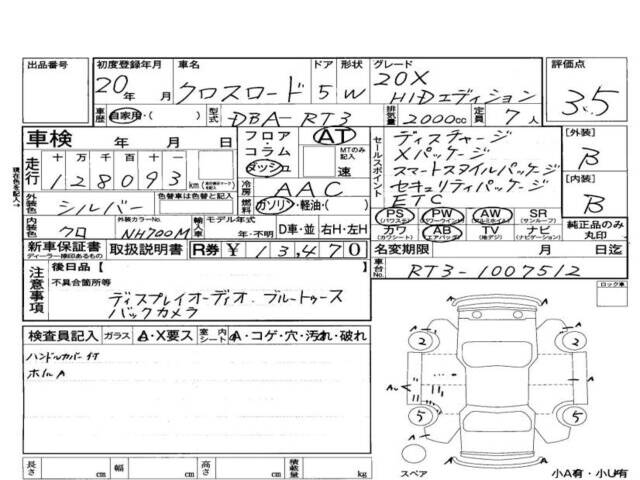 出品番号 初度登録年月 車名 ドア 形状 グレード 評価点
20年 月 クロスロード 5 W 20X HIDエディション 3.5
車歴 自家用・( ) 型式 DBA-RT3 排気量 2000cc 定員 7人
車検 年 月 日
フロア・コラム・ダッシュ AT MTのみ記入 速
セールスポイント
ディスチャージ
Xパッケージ
スマートスタイルパッケージ
セキュリティパッケージ
ETC
[外装] B
[内装] B
現在色を記入→
走行 十 万 千 百 十 一
128093 km
冷房 AAC
外装色 シルバー 色替車は色替と記入
燃料 ガソリン・軽油・( )
内装色 クロ 外装カラーNo. NH700M 輸入車 モデル年式 年・不明 D車・並 右H・左H
PS (パワステ) PW (パワーウインド) AW (アルミホイル) SR (サンルーフ)
カワ (カワシート) AB (エアバッグ) TV (地デジ) ナビ (ナビゲーション)
純正品のみ丸印
新車保証書 ディーラー捺印あるもの 取扱説明書 R券 ¥13,470
名変期限 月 日迄
車台No. RT3-1007512
注意事項
後日品[ ]
不具合箇所等
ディスプレイオーディオ. ブルートゥース
バックカメラ
ロック車
検査員記入 ガラス A・X要ス 室内シート A・コゲ・穴・汚れ・破れ
ハンドルカバー付
ホイルA
A A
2 2
A A
5 5
A A
スペア 小A有・小U有
長さ cm 幅 cm 高さ cm 積載量 kg